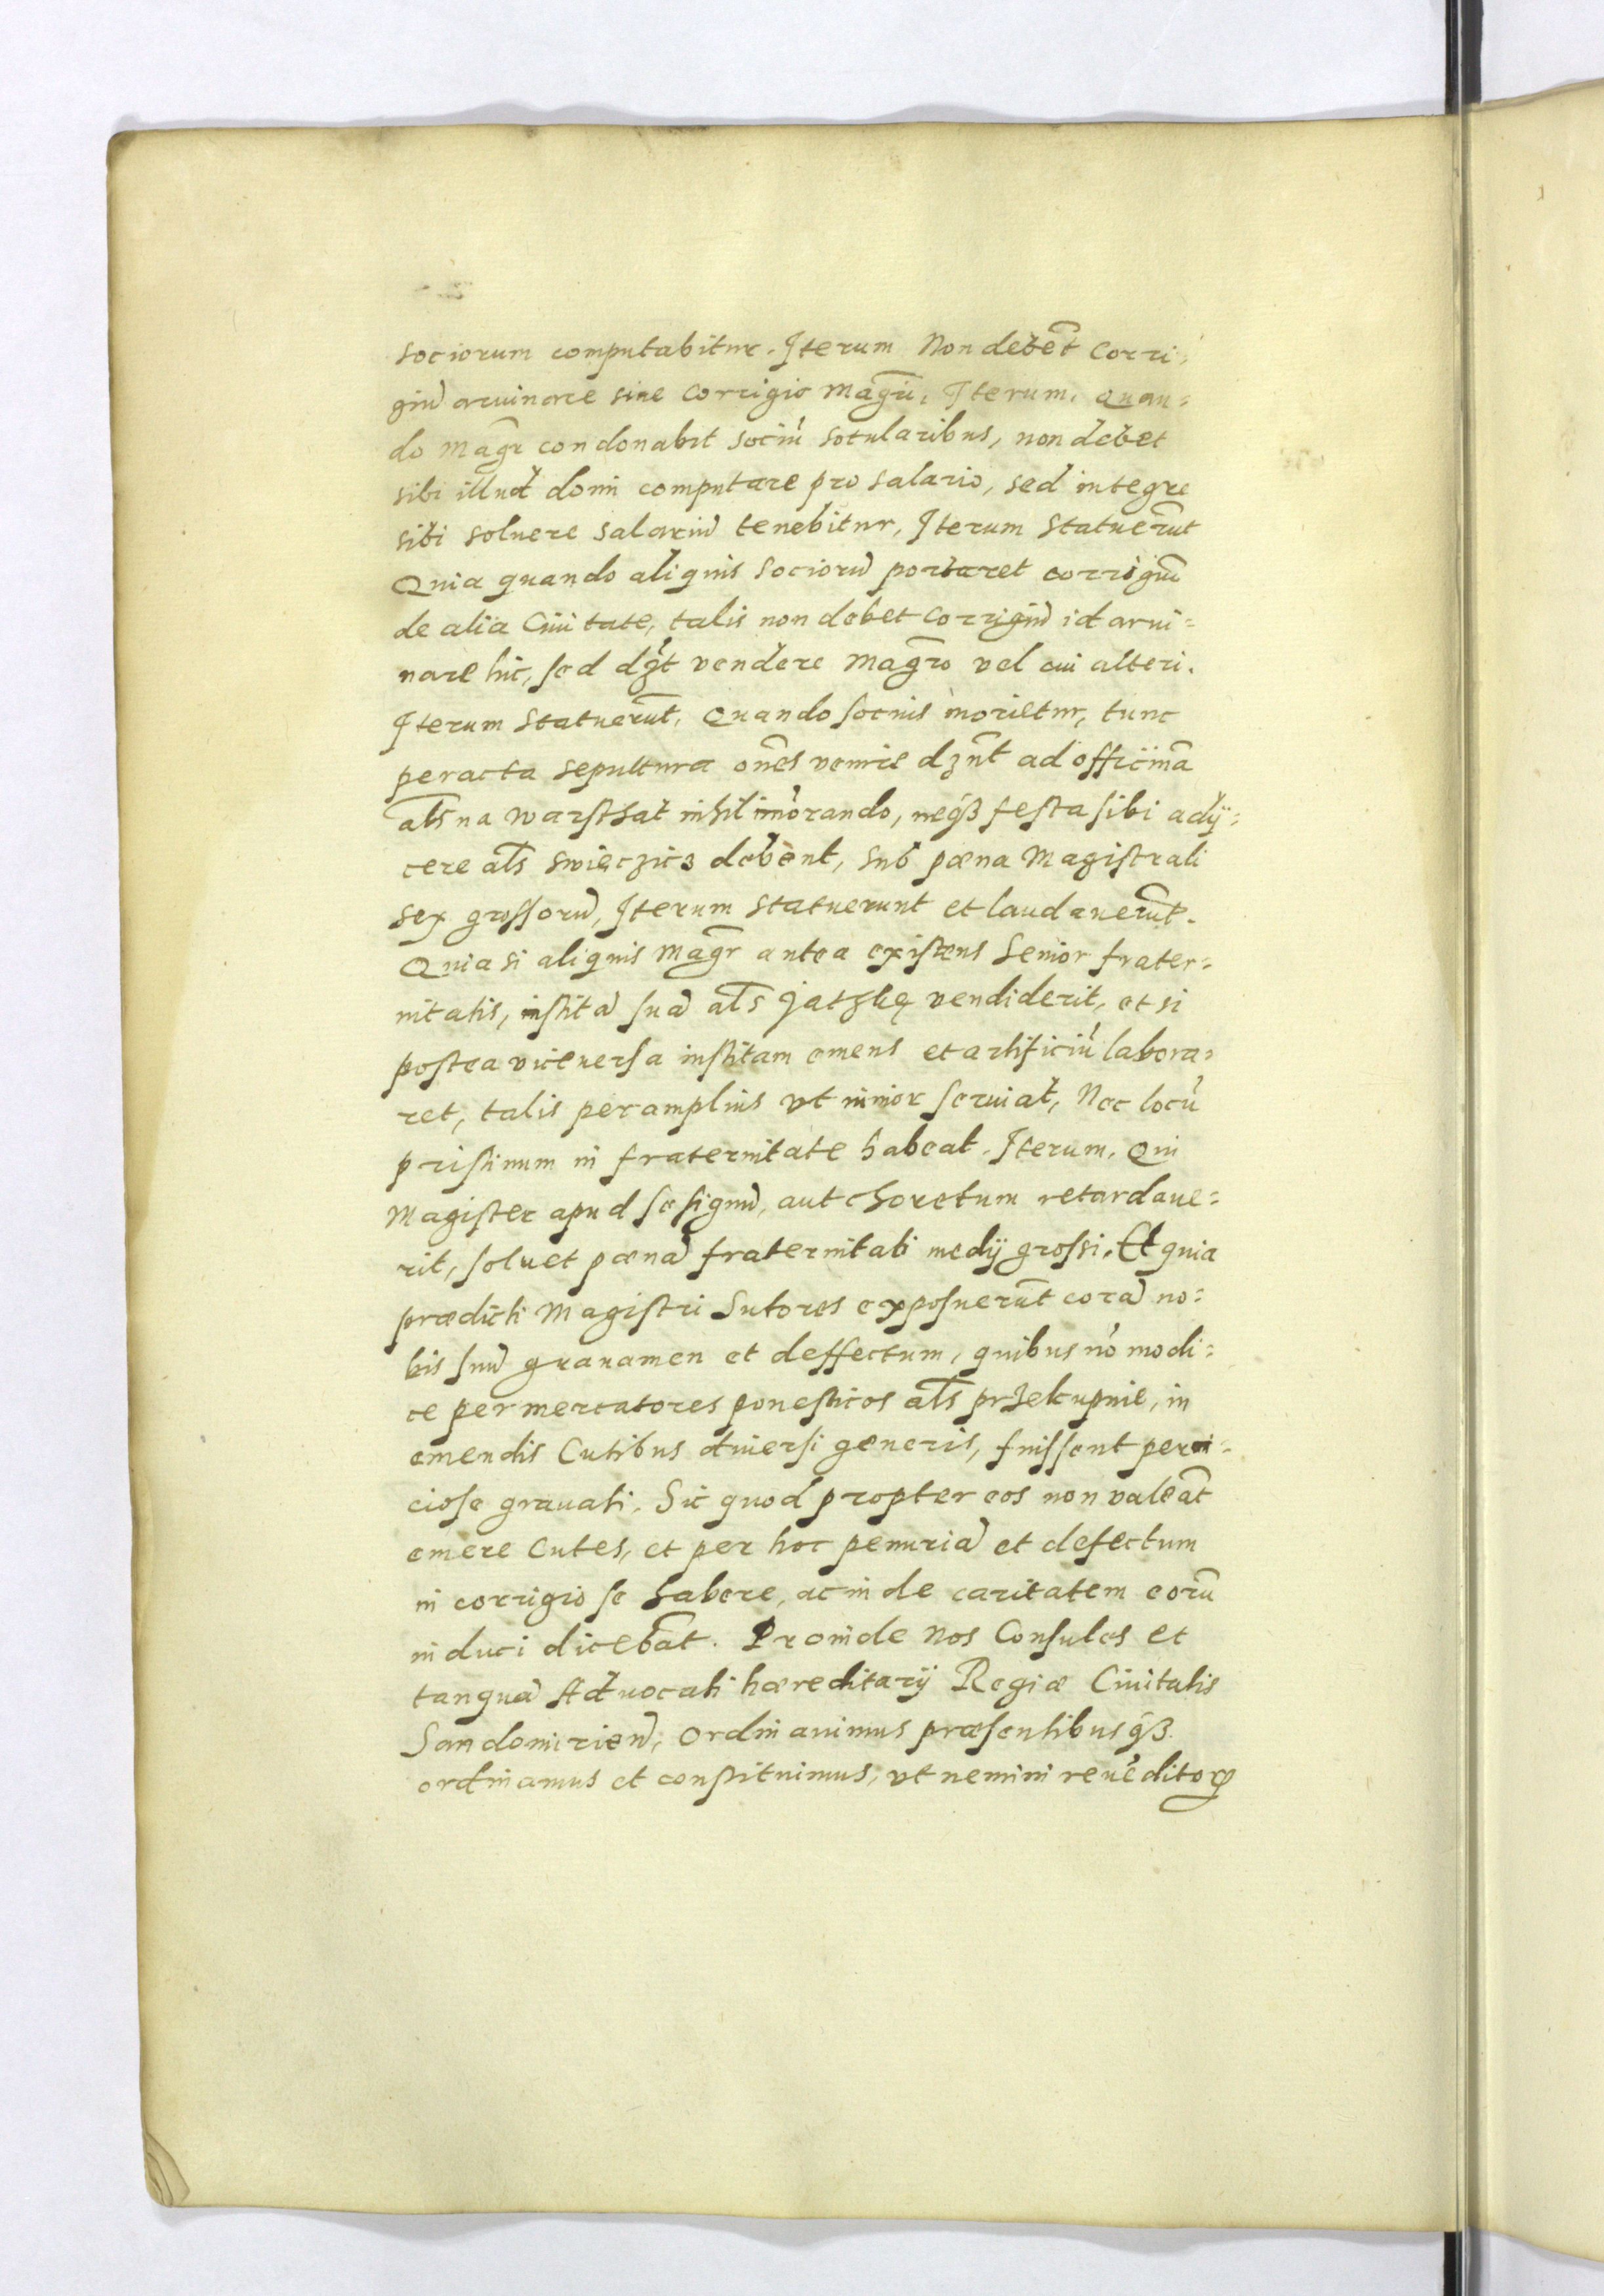 sociorum computabitur. Iterum Non debet̃ Corri¬
giũ aruinare sine Corrigio Magr̃i, Iterum, Quan=
do Magr̃ condonabit sociũ sotularibus, non debet
sibi illud domi computare pro salario, sed integre
sibi soluere salariũ tenebitur, Iterum statuerũt
Quia quando aliquis sociorũ portaret corrigiũ
de alia Ciuitate, talis non debet Corrigiũ id arui=
nare hic, sed dz̃t vendere Magr̃o vel cui alteri.
Iterum statuerũt, Quando socius morietur, tunc
peracta sepultura om̃es venire dzñt ad officinã
als̃ na warsthat nihil im̃orando, neqз festa sibi adij=
cere als̃ swięczicz debent, sub pœna Magistrali
sex grossorũ, Iterum statuerunt et laudauerũt.
Quia si aliquis Magr̃ antea existens Senior frater=
nitatis, institã suã als̃ jatzkę vendiderit, et si
postea viceuersa institam emens et artificiũ labora=
ret, talis peramplius vt minor seruiat, Nec locũ
pristinum in fraternitate habeat. Iterum, Qui
Magister apud se signũ, aut choretum retardaue=
rit, soluet pœnã fraternitati medij grossi. Et quia
prædicti Magistri Sutores exposuerũt corã no=
bis suũ grauamen et deffectum, quibus nõ modi=
ce per mercatores ponesticos als̃ przekupnie, in
emendis Cutibus diuersi generis, fuissent perni=
ciose grauati, Sic quod propter eos non valeãt
emere Cutes, et per hoc penuriã et defectum
in corrigio se habere, ac inde caritatem eorũ
induci dicebãt. Proinde Nos Consules et
tanquã Aduocati hæreditarij Regiæ Ciuitatis
Sandomirien̄, Ordinauimus præsentibusqз
ordinamus et constituimus, vt nemini reuẽditorꝝ